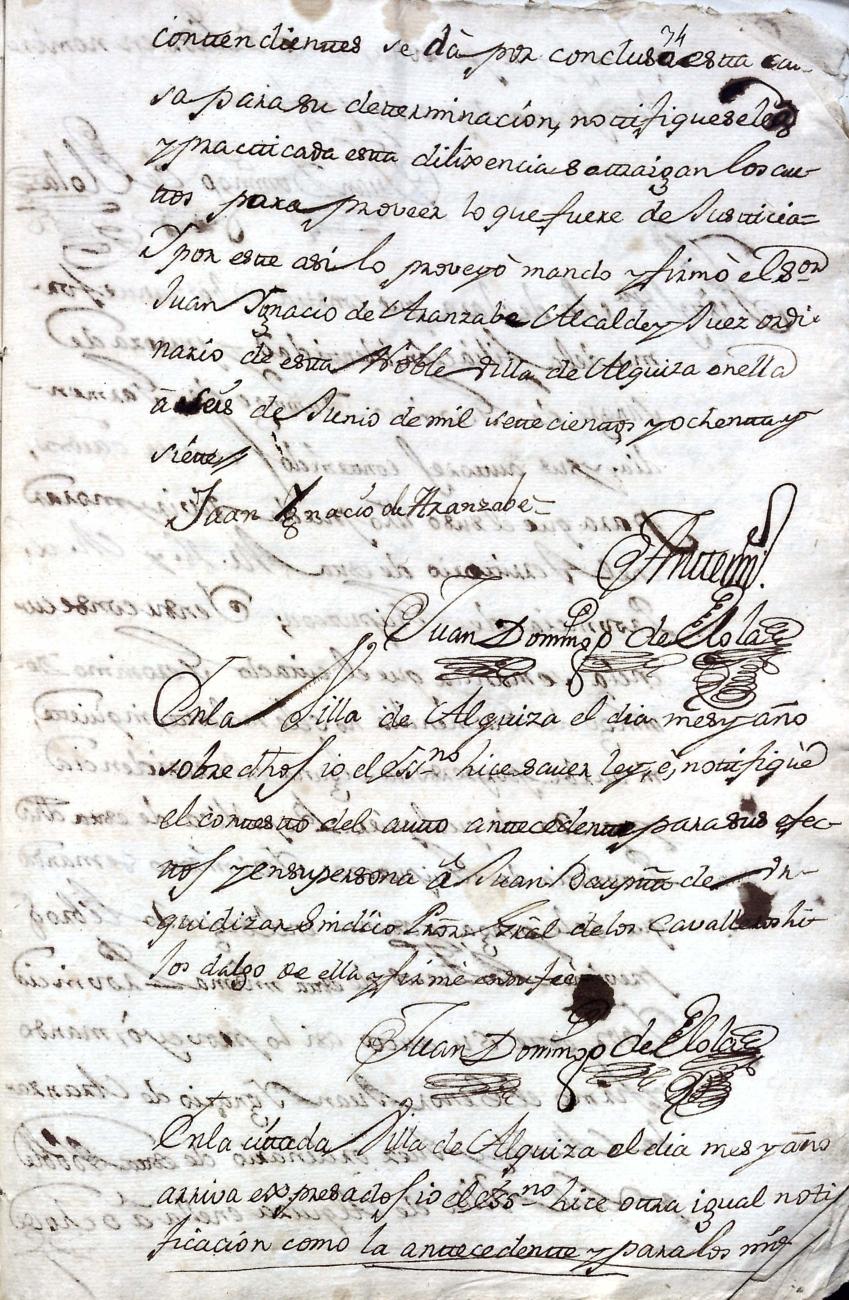 34
conttendienttes se dà por conclusa estta cau-
sa para su detterminación, nottifiqueseles
y practticada estta dilixencia se attraigan los au-
ttos para proveer lo que fuere de Justticia=
Y por estte asi lo proveyò mando y firmò el Sor
Juan Ignacio de Aranzabe Alcalde y Juez ordi-
nario de estta Noble Villa de Alquiza en ella
à seis de Junio de mil settecienttos y ochentta y
siette//
Juan Ignacio de Aranzabe=
Antte mi
Juan Domingo de Elola
En la Villa de Alquiza el dia mes y año
sobre dhos io el Essno hice saver ley, è, nottifiquè
el contestto del autto anttecedentte para sus efec-
ttos y en su persona à Juan Bauptta de In-
quidizar Sindico Pror Gral de los Cavalleros hi-
los dalgo de ella y firmè en su fèe
Juan Domingo de Elola
En la cittada Villa de Alquiza el dia mes y año
arriva expresados io el Essno hice ottra igual notti
ficación como la anttecedentte y para los mis